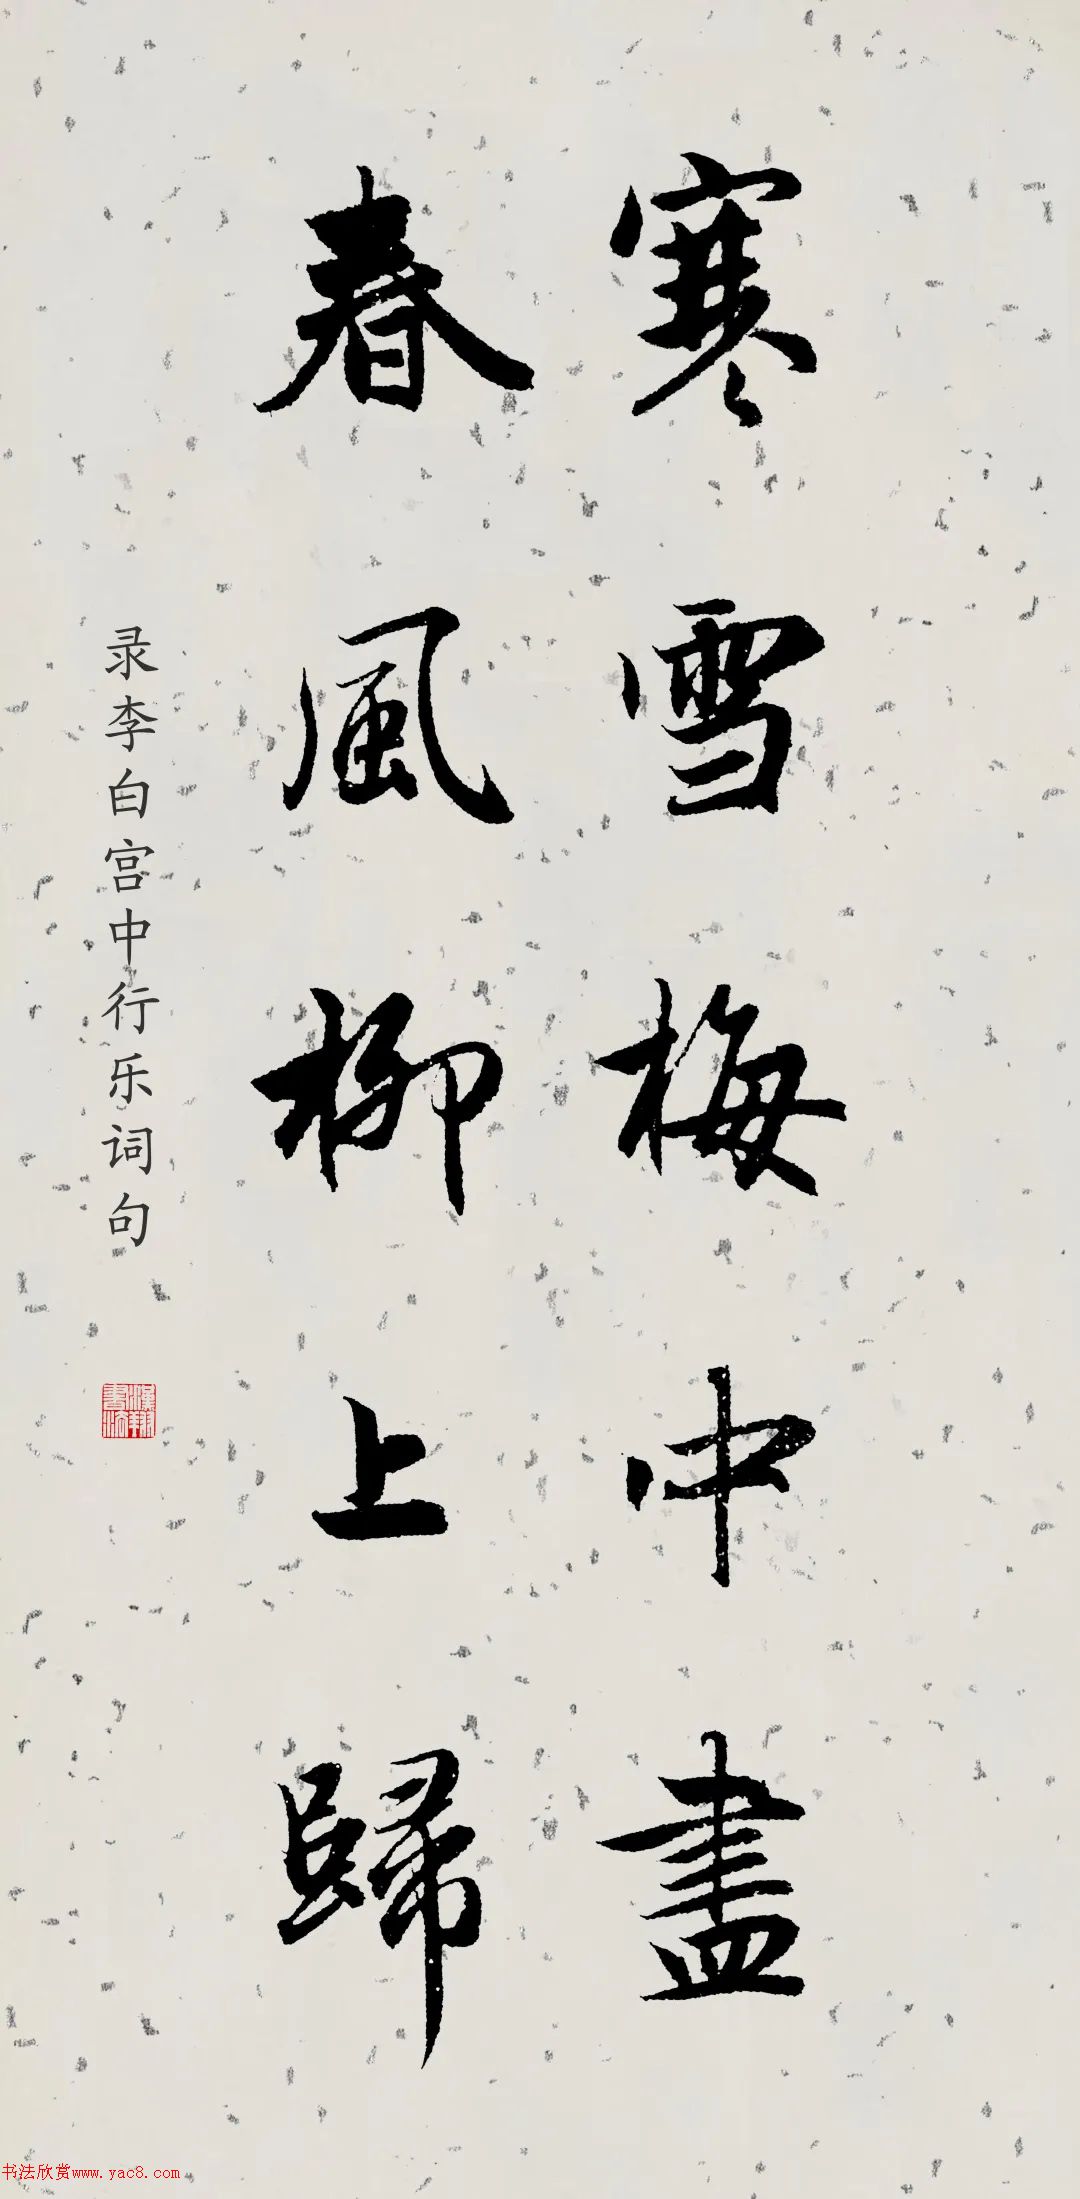 寒雪梅中盡
春風柳上歸
录李白宫中行乐词句
书法欣赏www.yac8.com